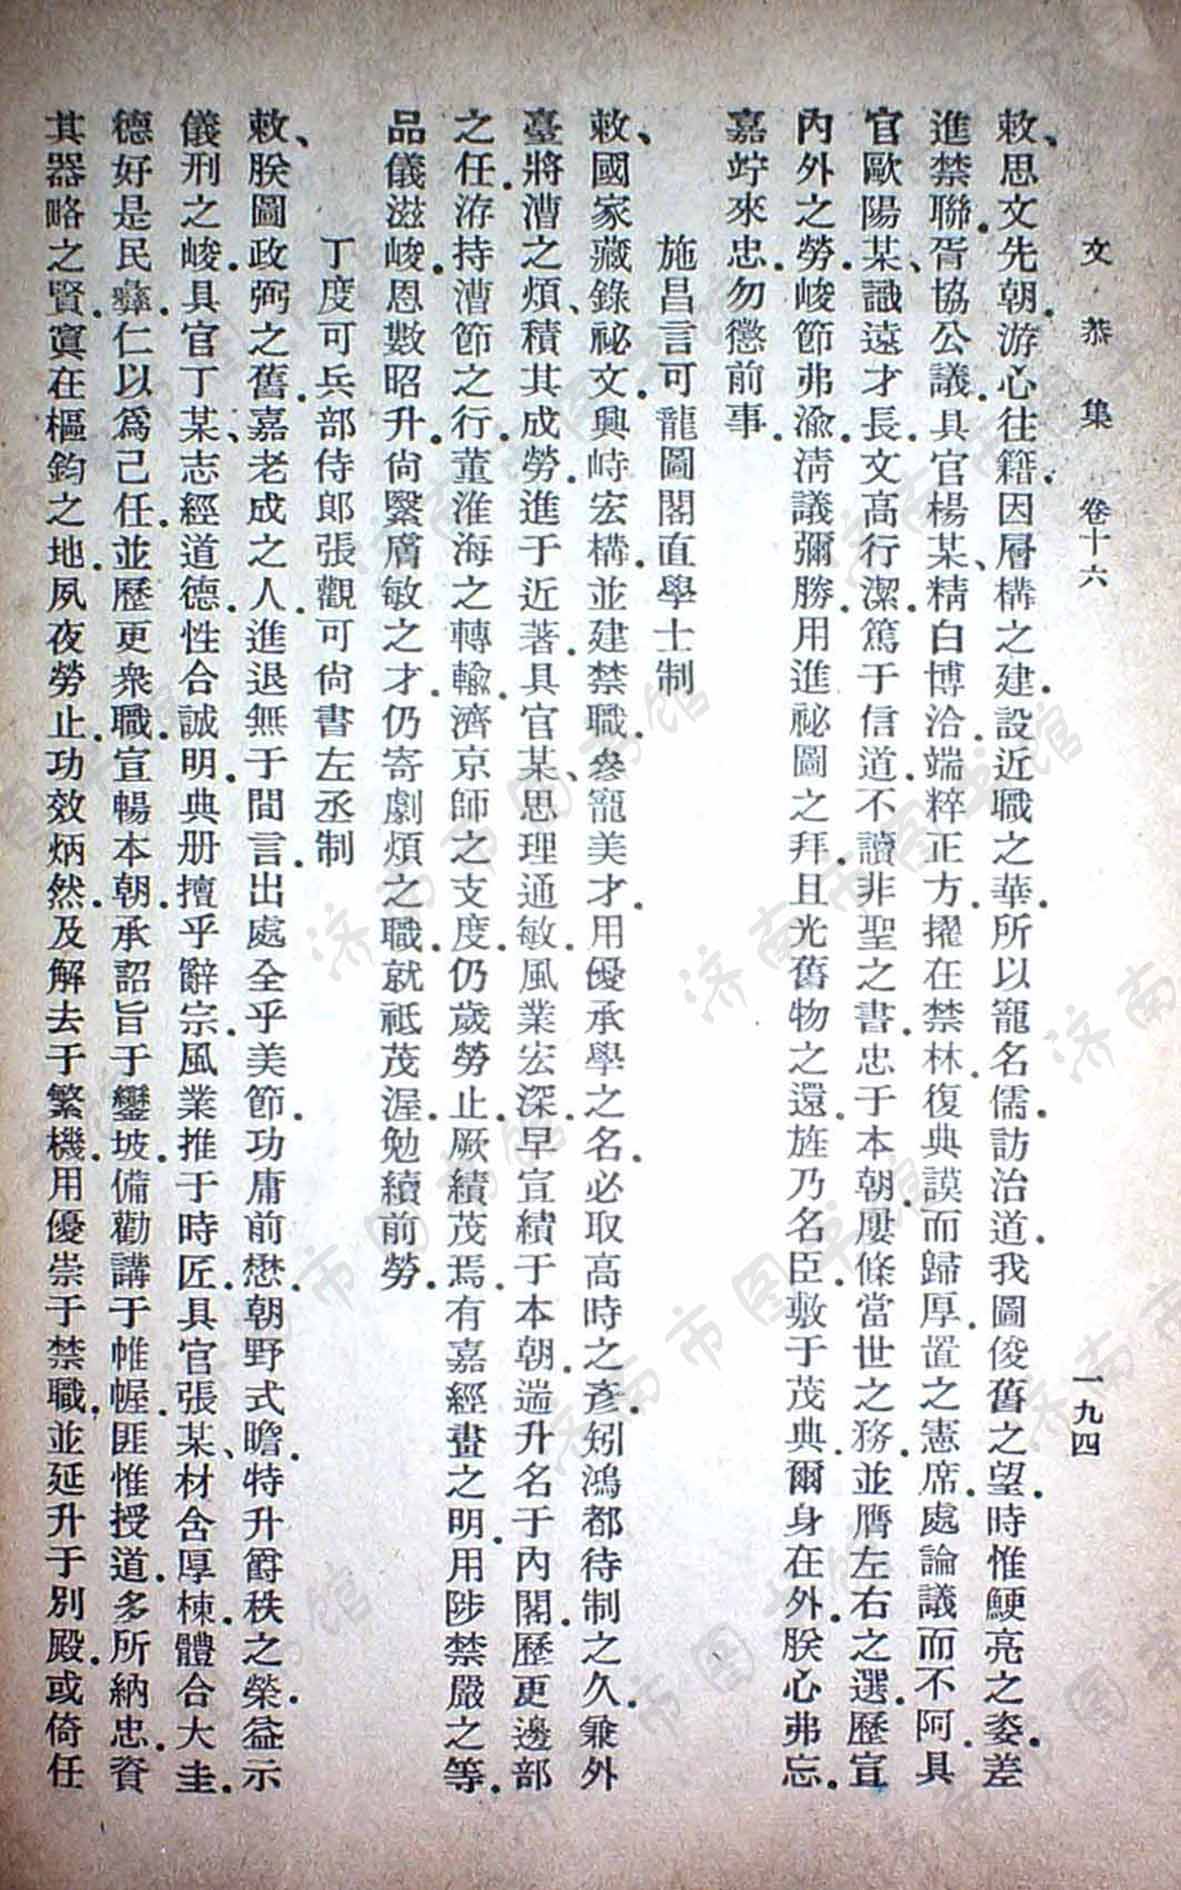 文恭集 卷十六 一九四
敕、思文先朝．游心往籍．因層構之建．設近職之華．所以寵名儒．訪治道．我圖俊舊之望．時惟鯁亮之姿．差
進禁聯．胥協公議．具官楊某、精白博洽．端粹正方．擢在禁林．復典謨而歸厚．置之憲席．處論議而不阿．具
官歐陽某、識遠才長．文高行潔．篤于信道．不讀非聖之書．忠于本朝．屢條當世之務．並膺左右之選．歷宣
內外之勞．峻節弗渝．淸議彌勝．用進祕圖之拜．且光舊物之還．旌乃名臣．敷于茂典．爾身在外．朕心弗忘．
嘉竚來忠．勿懲前事．
施昌言可龍圖閣直學士制
敕、國家藏錄祕文．興峙宏構．並建禁職．參寵美才．用優承學之名．必取高時之彥．矧鴻都待制之久．兼外
臺將漕之煩．積其成勞．進于近著．具官某、思理通敏．風業宏深．早宣績于本朝．遄升名于內閣．歷更邊部
之任．洊持漕節之行．董淮海之轉輸．濟京師之支度．仍歲勞止．厥績茂焉．有嘉經畫之明．用陟禁嚴之等．
品儀滋峻．恩數昭升．尙繄膚敏之才．仍寄劇煩之職．就祗茂渥．勉續前勞．
丁度可兵部侍郎張觀可尙書左丞制
敕、朕圖政弼之舊．嘉老成之人．進退無于間言．出處全乎美節．功庸前懋．朝野式瞻．特升爵秩之榮．益示
儀刑之峻．具官丁某、志經道德．性合誠明．典册擅乎辭宗．風業推于時匠．具官張某、材含厚棟．體合大圭．
德好是民彝．仁以爲己任．並歷更衆職．宣暢本朝．承詔旨于鑾坡．備勸講于帷幄．匪惟授道．多所納忠．資
其器略之賢．寘在樞鈞之地．夙夜勞止．功效炳然．及解去于繁機．用優崇于禁職．並延升于別殿．或倚任